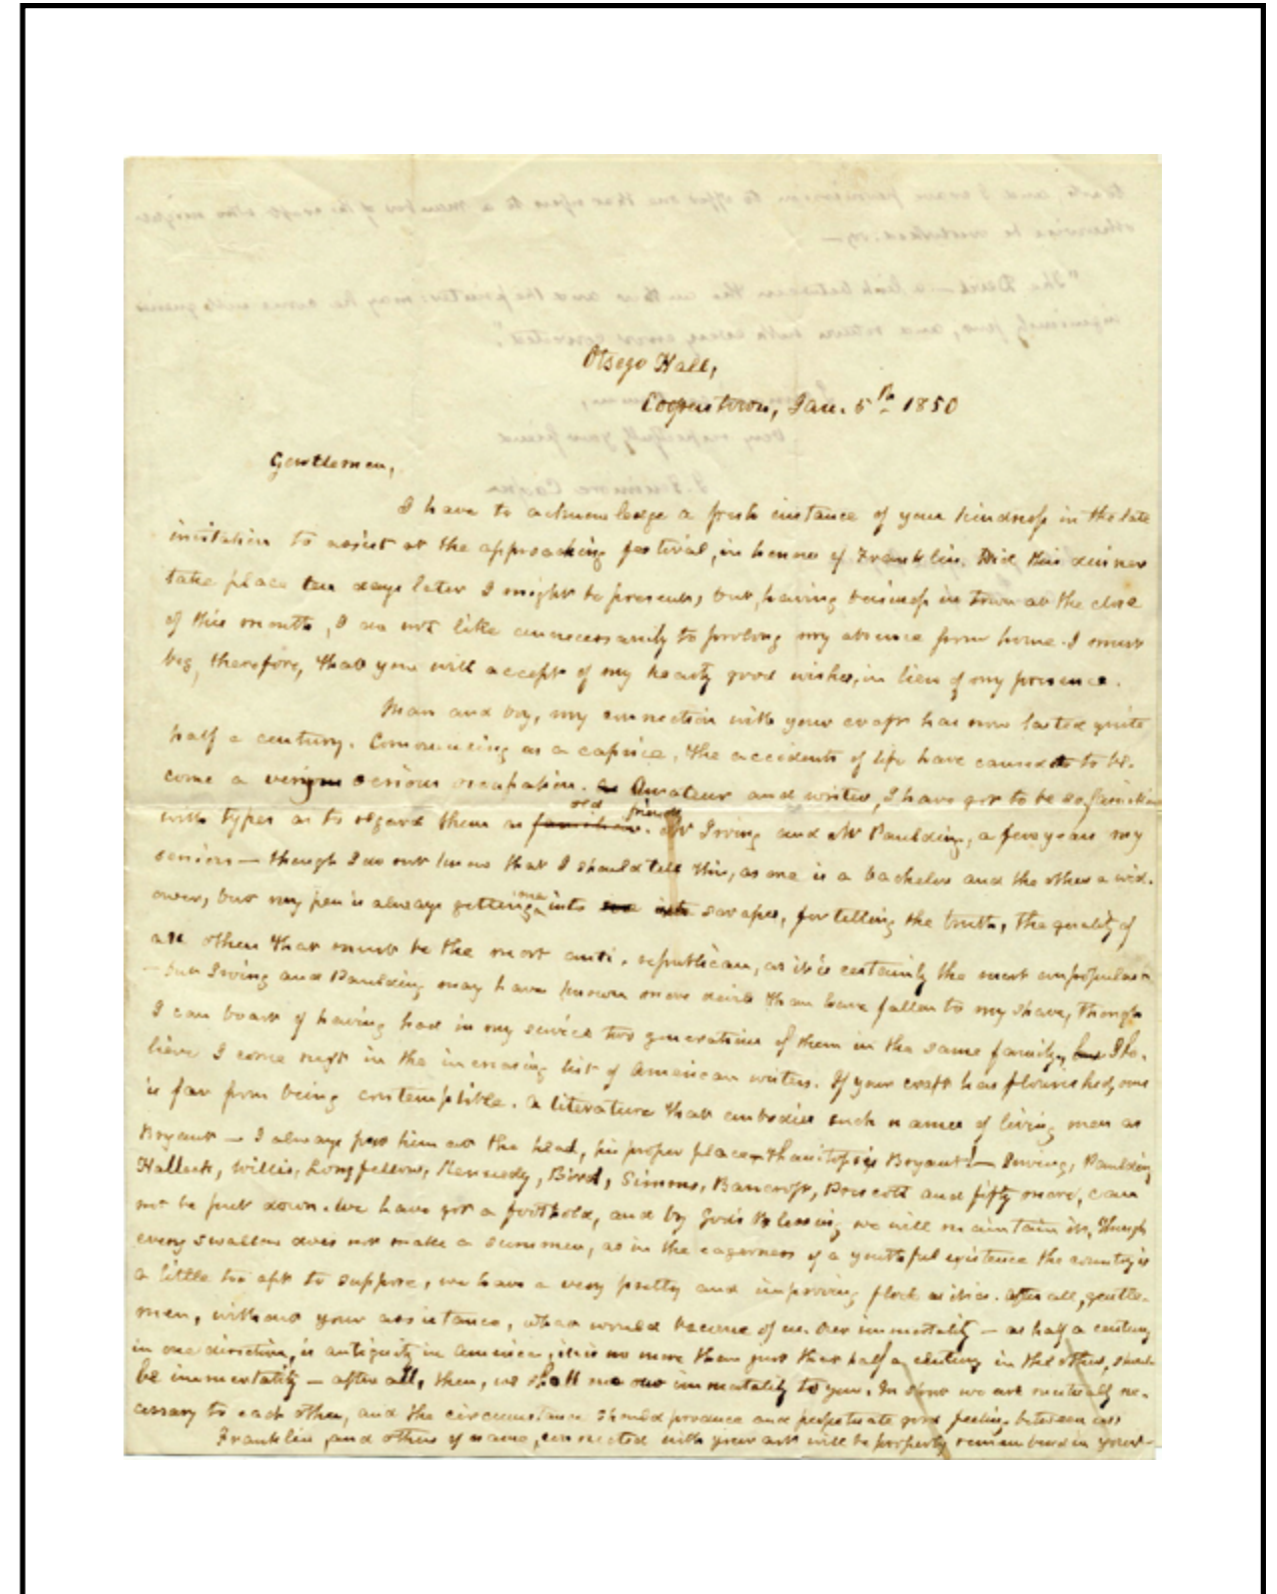 Otsego Hall,
Cooperstown, Jan. 5th 1850
Gentlemen,
I have to acknowledge a fresh instance of your kindness in the late
invitation to assist at the approaching festival, in honor of Franklin. Did this dinner
take place ten days later I might be present, but, having business in town at the close
of this month, I do not like unnecessarily to prolong my absence from home. I must
beg, therefore, that you will accept of my hearty good wishes, in lieu of my presence.
Man and boy, my connection with your craft has now lasted quite
half a century. Commencing as a caprice, the accidents of life have caused it to be-
come a very serious occupation. Amateur and writer, I have got to be so familiar
with types as to regard them as old friends. Mr Irving and Mr Paulding, a few years my
seniors — though I do not know that I should tell this, as one is a bachelor and the other a wid-
ower, but my pen is always getting me into scrapes, for telling the truth, the quality of
all others that must be the most anti-republican, as it is certainly the most unpopular
— but Irving and Paulding may have known more devils than have fallen to my share, though
I can boast of having had in my service two generations of them in the same family, I be-
lieve I come next in the increasing list of American writers. If your craft has flourished, ours
is far from being contemptible. A literature that embodies such names of living men as
Bryant — I always put him at the head, his proper place — Thanatopsis Bryant! — Irving, Paulding
Halleck, Willis, Longfellow, Kennedy, Bird, Simms, Bancroft, Prescott and fifty more, can
not be put down. We have got a foothold, and by God's blessing we will maintain it, though
every swallow does not make a summer, as in the eagerness of a youthful existence the country is
a little too apt to suppose, we have a very pretty and improving flock as it is. After all, gentle-
men, without your assistance, what would become of us. Our immortality — as half a century
in one direction, is antiquity in America, it is no more than just that half a century in the other, should
be immortality — after all, then, we shall owe our immortality to you. In short we are mutually ne-
cessary to each other, and the circumstance should produce and perpetuate good feeling between us
Franklin, and others of name, connected with your art will be properly remembered in your